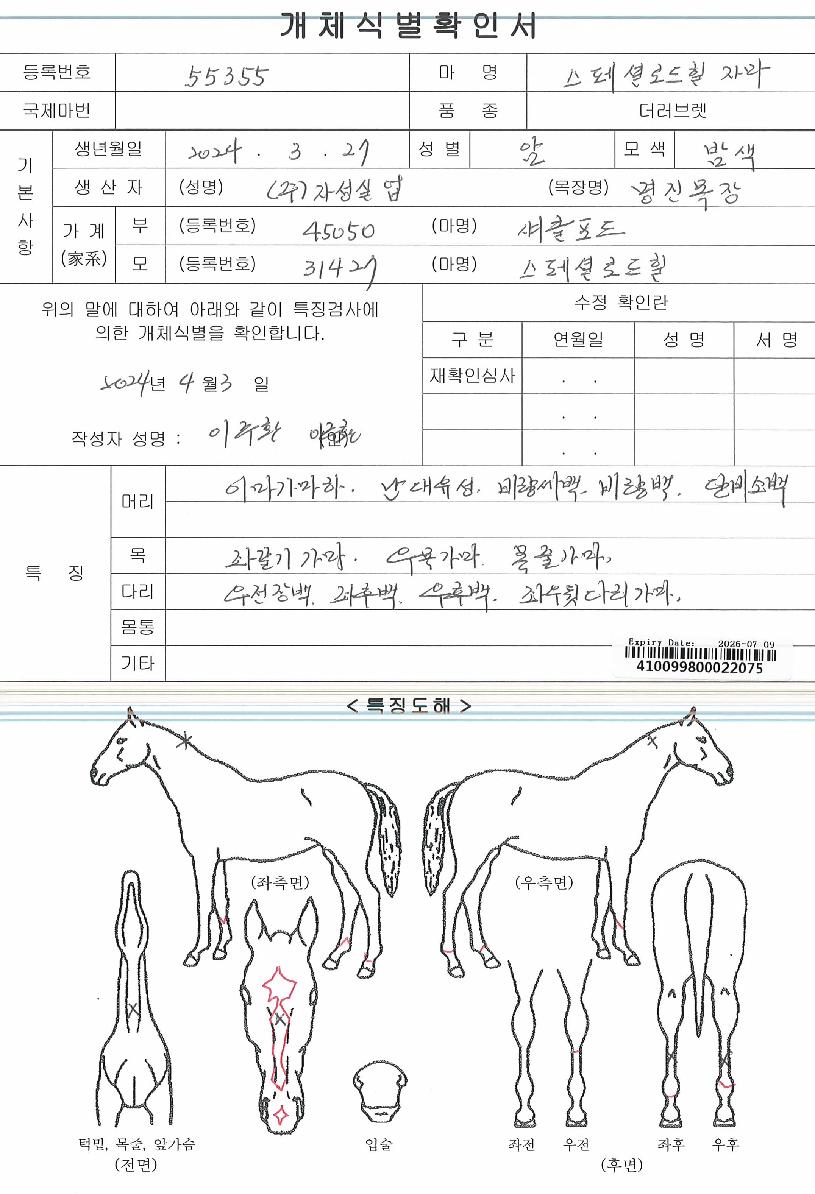 개체식별확인서
등록번호 55355 마 명 스페셜로드힐 자마
국제마번 품 종 더러브렛
기본사항 생년월일 2024 . 3 . 27 성 별 암 모 색 밤색
생 산 자 (성명) (주)자성실업 (목장명) 명진목장
가 계 (家系) 부 (등록번호) 45050 (마명) 섀클포드
모 (등록번호) 31427 (마명) 스페셜로드힐
위의 말에 대하여 아래와 같이 특징검사에
의한 개체식별을 확인합니다.
수정 확인란
구 분 연월일 성 명 서 명
재확인심사 . .
. .
. .
2024년 4 월 3 일
작성자 성명 : 이주환
특 징
머리 이마가마하. 난대유성. 비량세백. 비량백. 단비소백
목 좌갈기 가마. 우목가마. 목줄가마.
다리 우전장백. 좌후백. 우후백. 좌우뒷다리가마.
몸통
기타
Expiry Date: 2026-07-09
410099800022075
< 특징도해 >
(좌측면) (우측면)
턱밑, 목줄, 앞가슴
(전면)
입술
좌전 우전 좌후 우후
(후면)